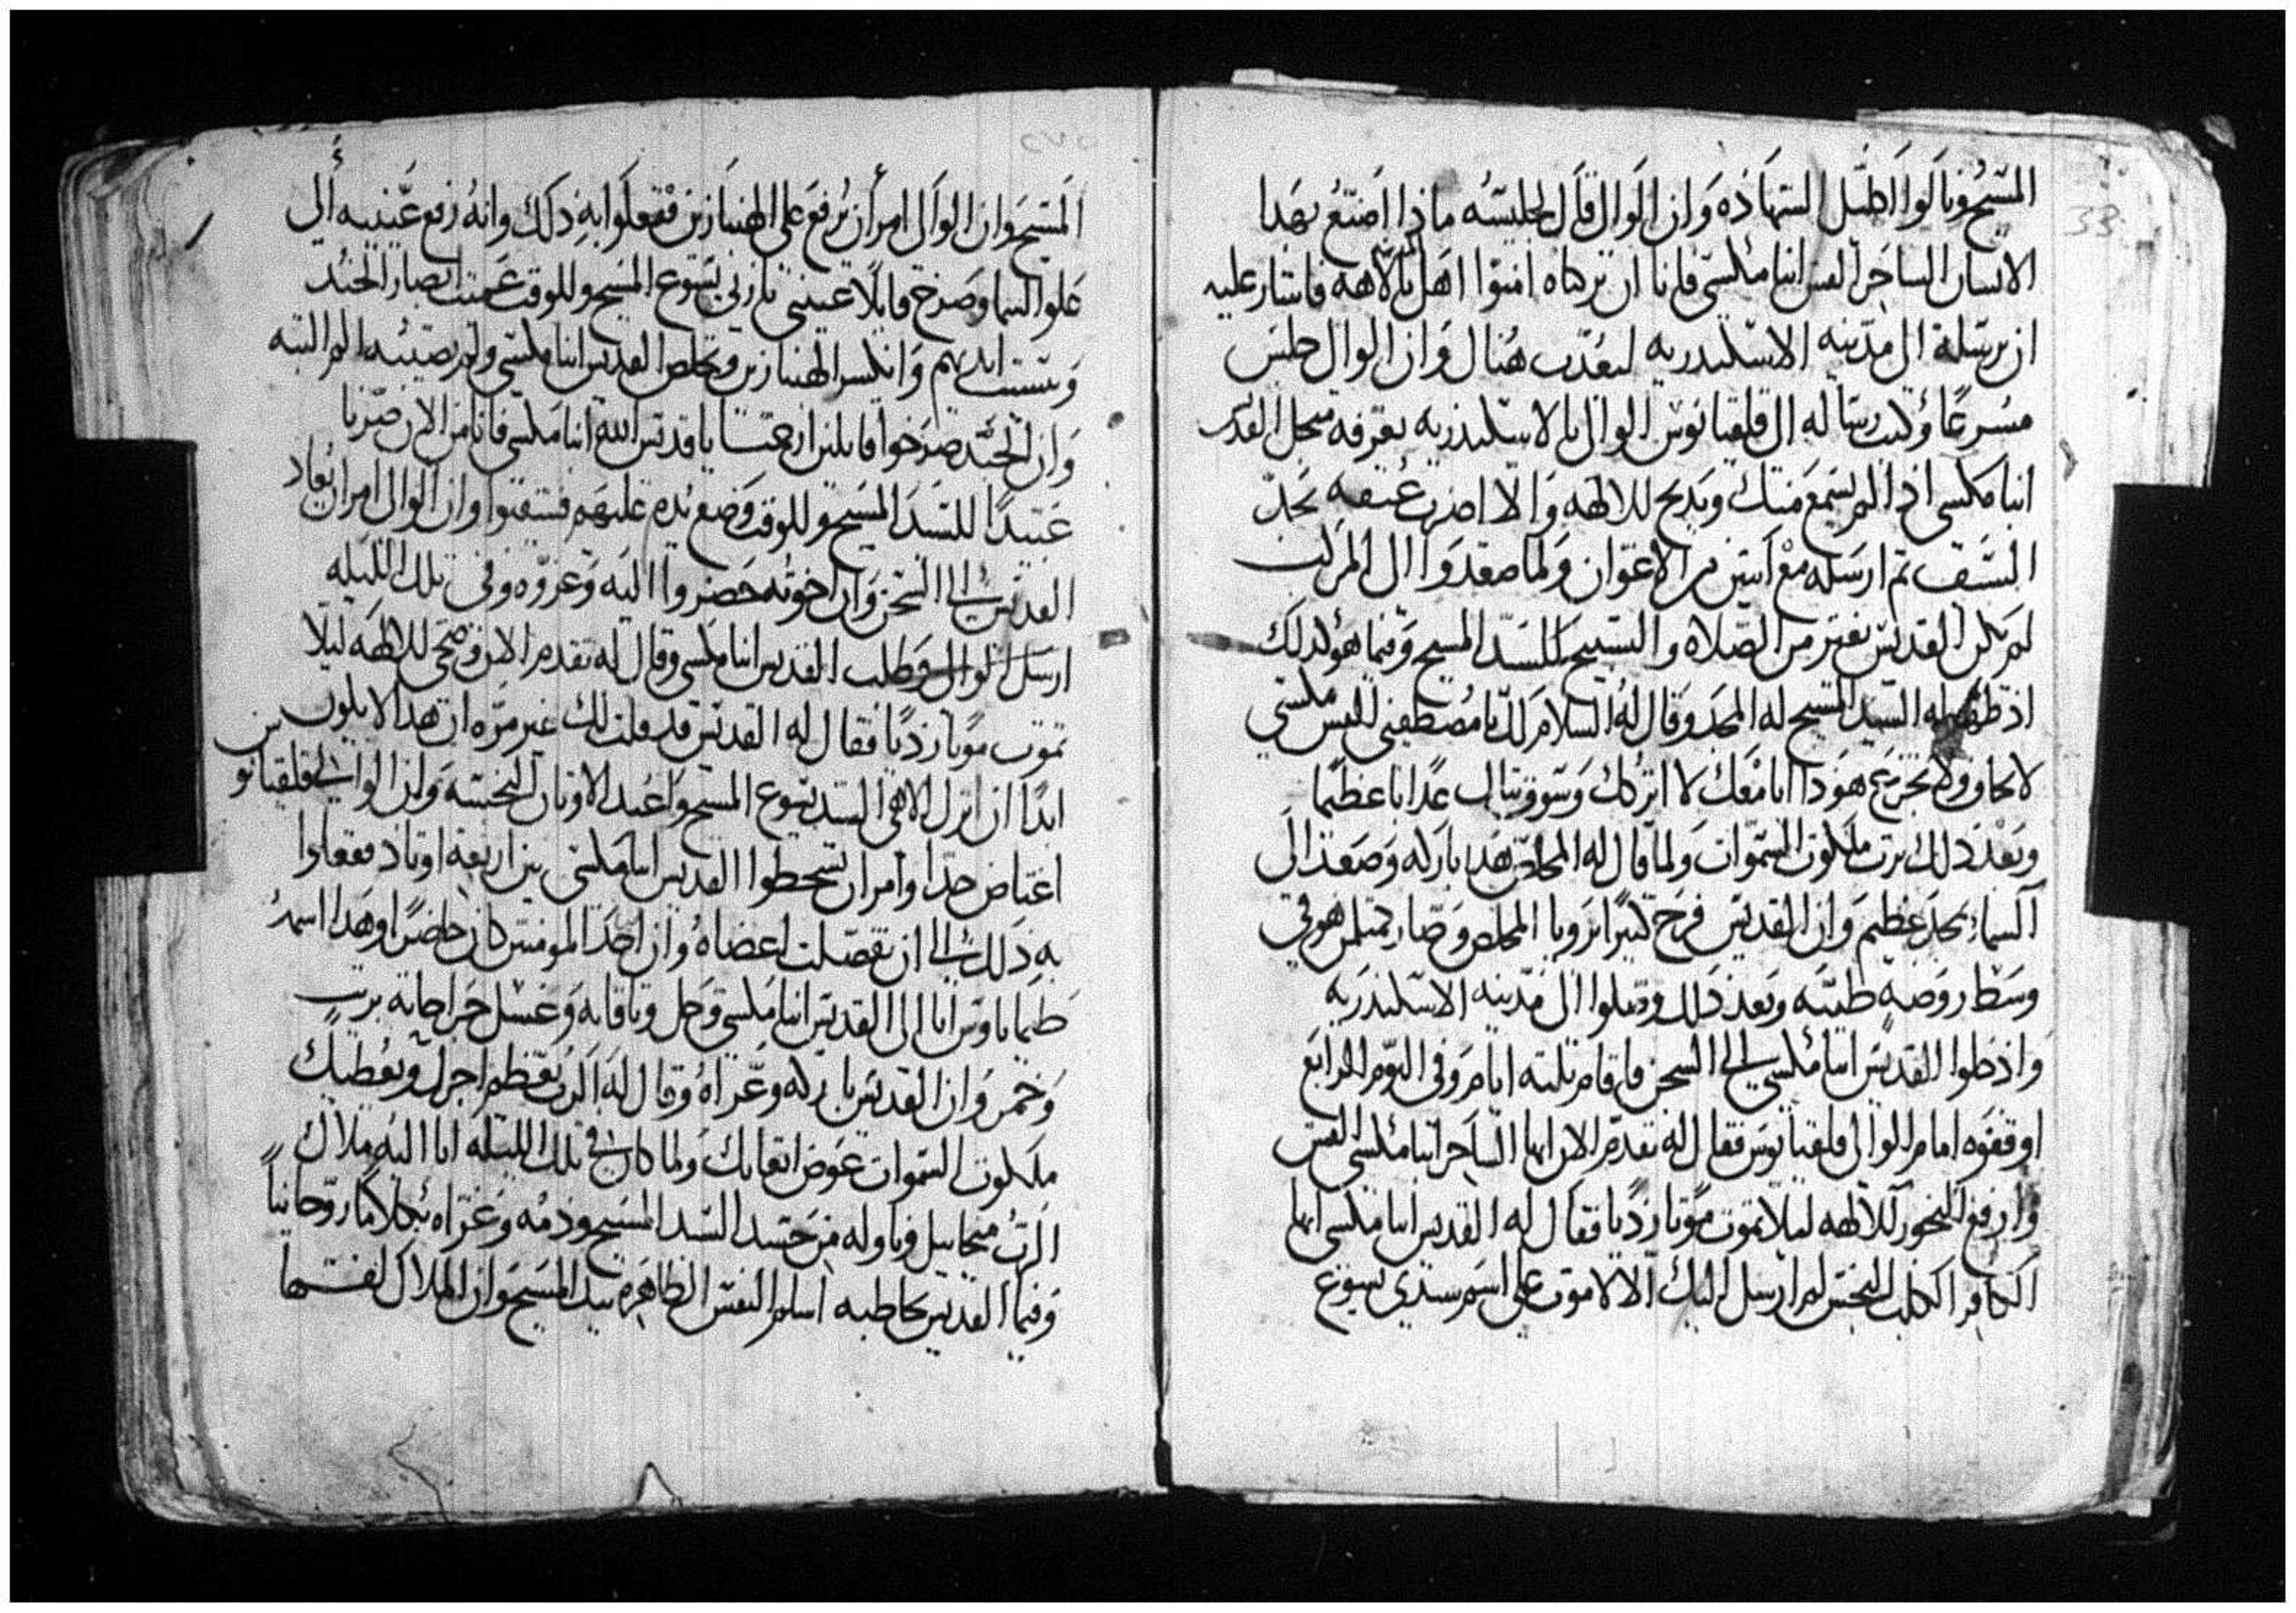 المسيح ونالوا اكليل الشهاده وان الوالي قال لجليسه ماذا اصنع بهدا
الانسان الساحر القس انبا مكسي فاننا ان تركناه امنوا اهل بالاهه فاشار عليه
ان يرسله الى مدينه الاسكندريه ليعذب هناك وان الوالي جلس
مسرعا وكتب رساله الى قلقيانوس الوالي بالاسكندريه يعرفه من اجل القديس
انبا مكسي اذا لم يسمع منك ويذبح للالهه والا اضرب عنقه بحد
السيف ثم ارسله مع اثنين من الاعوان ولما صعدوا الى المركب
لم يكن القديس يفتر من الصلاه والتسبيح للسيد المسيح وفيما هو كذلك
اذ ظهر له السيد المسيح له المجد وقال له السلام لك يا مصطفيي القس مكسي
لا تخاف ولا تجزع هودا انا معك لا اتركك وسوف تنال عذابا عظيما
وبعد ذلك ترث ملكوت السموات ولما قال له المخلص هدا باركه وصعد الى
السماء بمجد عظيم وان القديس فرح كثيرا برويا المخلص وصار كمثل من هو في
وسط روضه طيبه وبعد ذلك وصلوا الى مدينه الاسكندريه
واذخلوا القديس انبا مكسي الى السجن فاقام ثلثه ايام وفي اليوم الرابع
اوقفوه امام الوالي قلقيانوس فقال له تقدم الان ايها الساحر انبا مكسي القس
وارفع البخور للالهه ليلا تموت موتا رديا فقال له القديس انبا مكسي ايها
الكافر الكلب النجس لم ارسل اليك الا لاموت على اسم سيدي يسوع
المسيح وان الوالي امر ان يرفع على الهنبازين ففعلوا به ذلك وانه رفع عينيه الى
علو السما وصرخ قايلا عينني يا ربي يسوع المسيح وللوقت عميت ابصار الجند
ويبست ايديهم وانكسر الهنبازين وتخلص القديس انبا مكسي ولم يصيبه الم البته
وان الجند صرخوا قايلين ارحمنا يا قديس الله انبا مكسي فاننا من الان صرنا
عبيدا للسيد المسيح وللوقت وضع يده عليهم فشفيوا وان الوالي امر ان يعاد
القديس الى السجن وان اخوته حضروا اليه وعزوه وفي تلك الليله
ارسل الوالي وطلب القديس انبا مكسي وقال له تقدم الان وضحي للالهه ليلا
تموت موتا رديا فقال له القديس قد قلت لك غير مره ان هدا لا يكون
ابدا ان اترك الاهي السيد يسوع المسيح واعبد الاوثان النجسه وان الوالي قلقيانوس
اغتاض جدا وامر ان يشحطوا القديس انبا مكسي بين اربعه اوتاد ففعلوا
به ذلك الى ان تفصلت اعضاه وان احد المومنين كان حاضرا وهدا اسمه
طيماناوس اتا الى القديس انبا مكسي وحل وثاقاته وغسل جراحاته بزيت
وخمر وان القديس باركه وعزاه وقال له الرب يعظم اجرك ويعطيك
ملكوت السموات عوض اتعابك ولما كان في تلك الليله اتا اليه ملاك
الرب ميخاييل وناوله من جسد السيد المسيح ودمه وعزاه بكلاما روحانيا
وفيما القديس يخاطبه اسلم النفس الطاهره بيد المسيح وان الملاك لفها